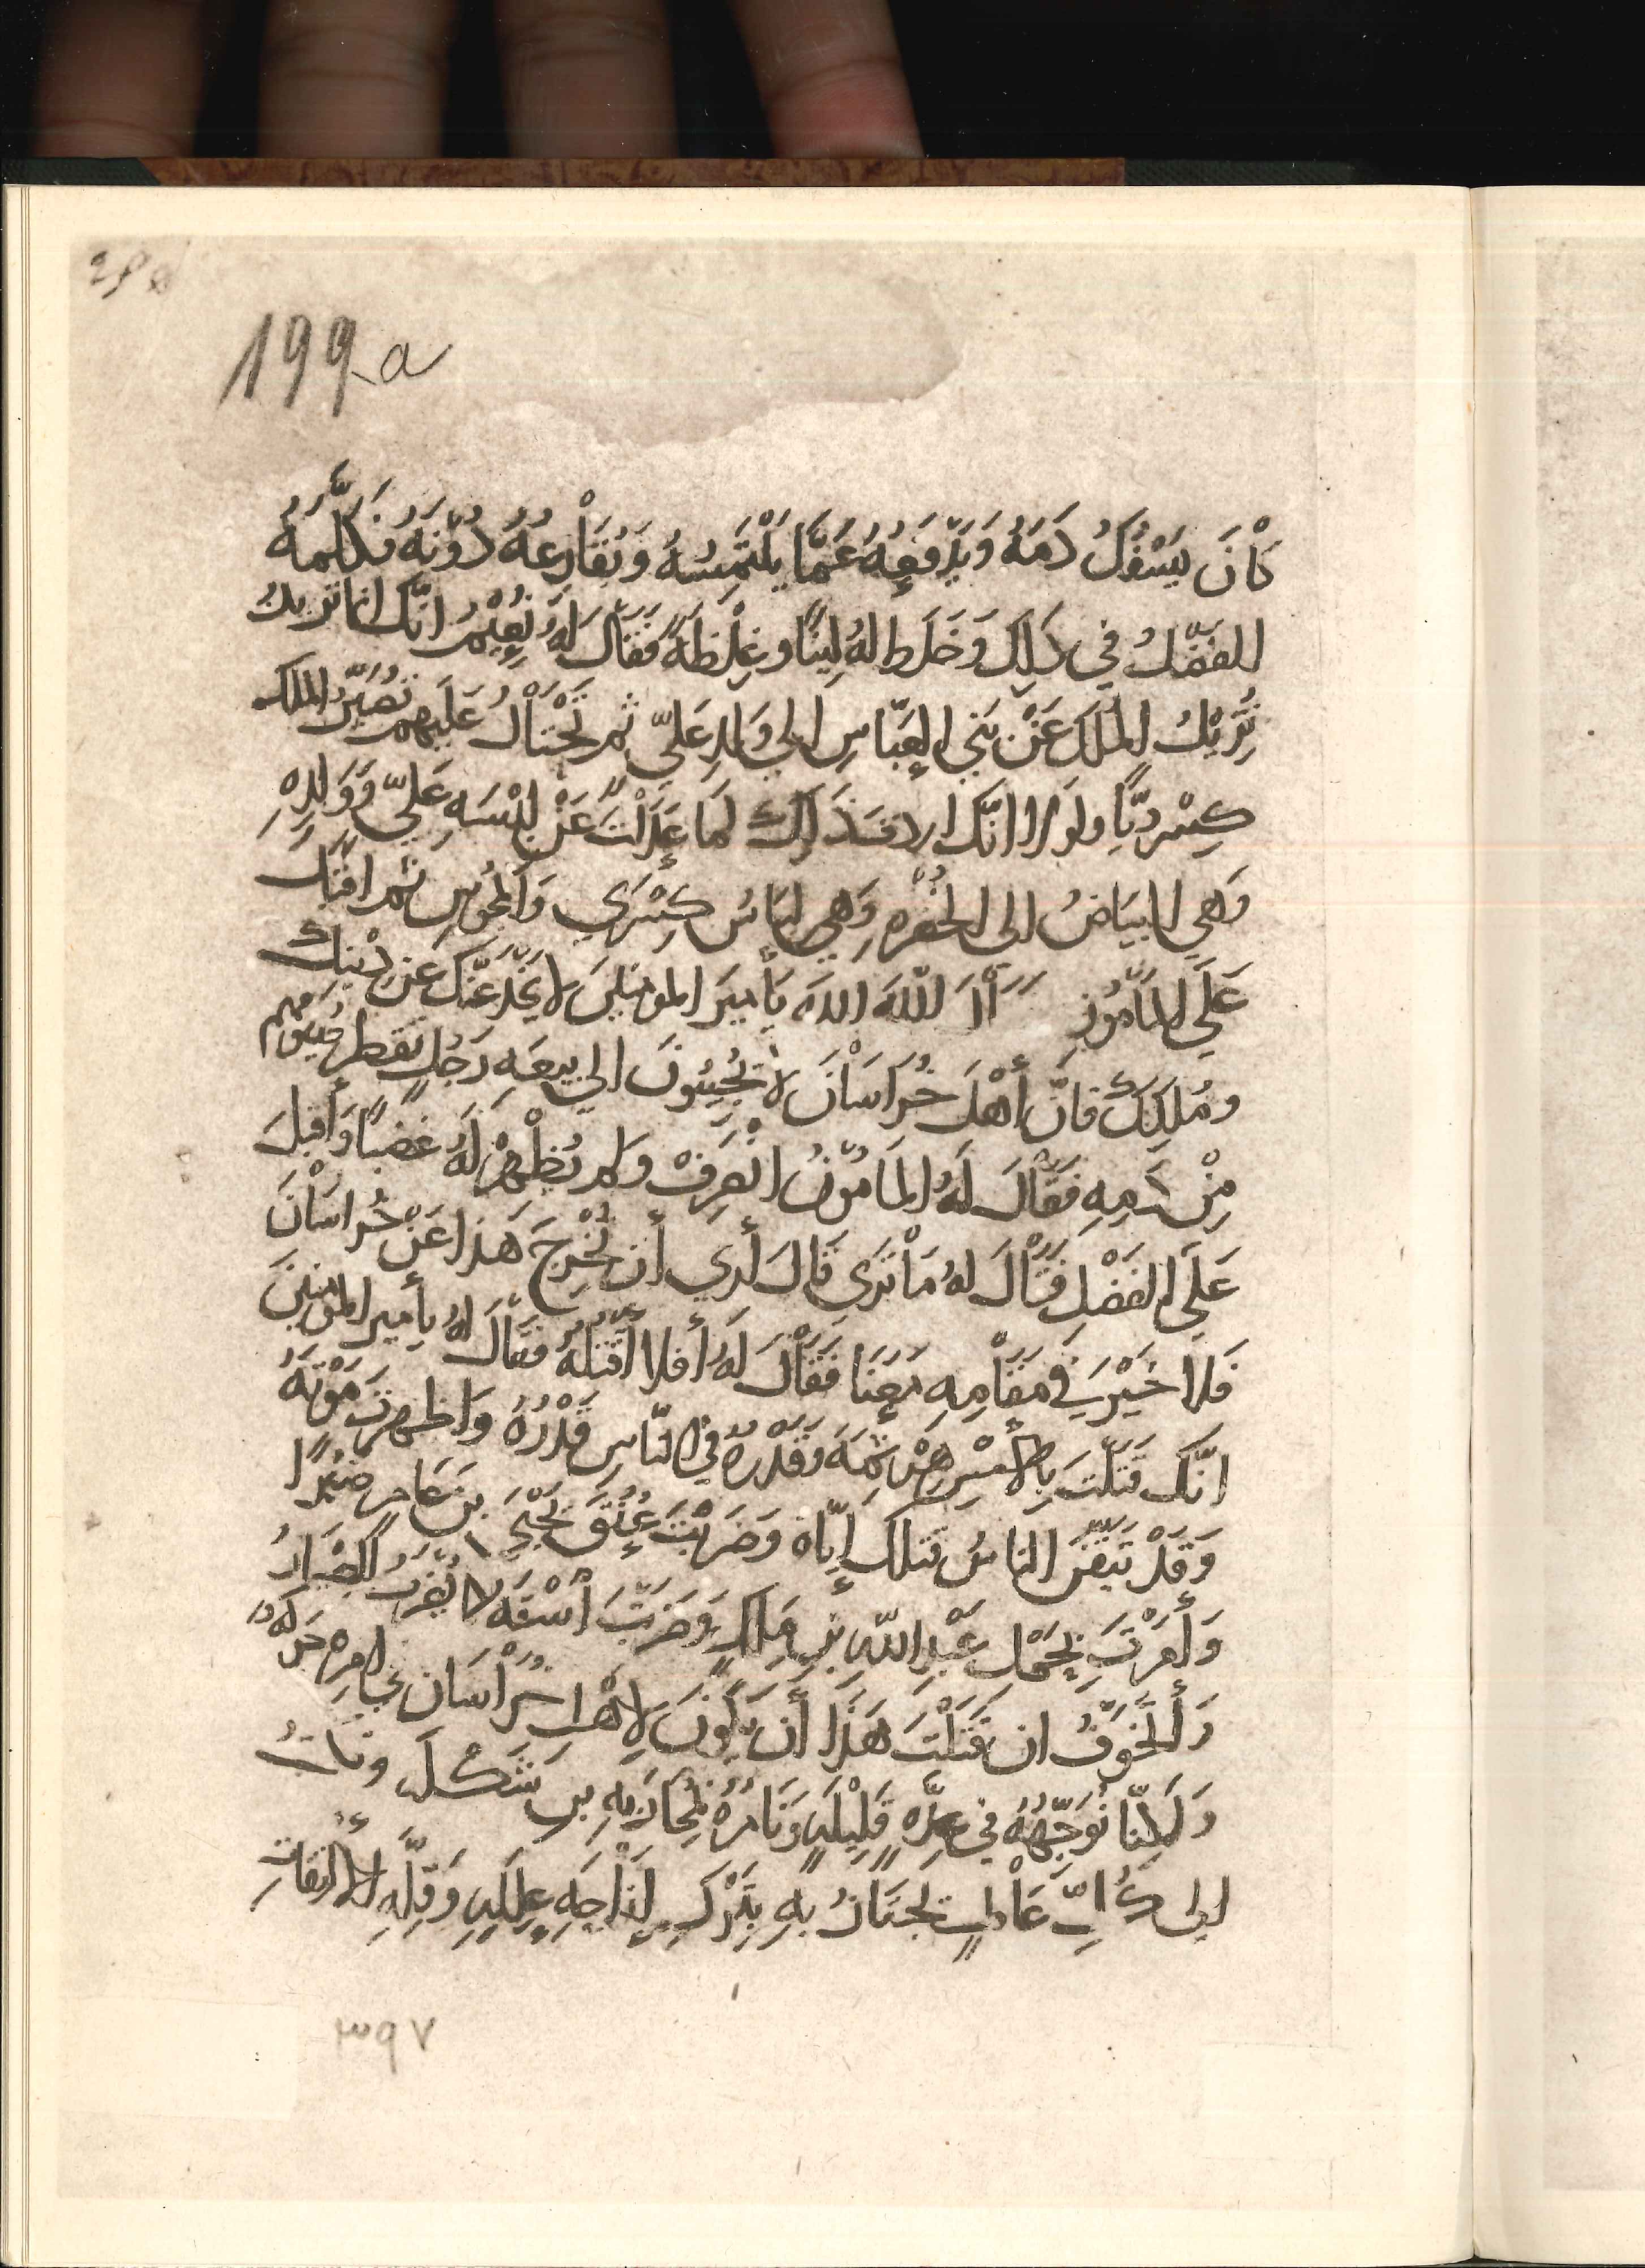 199a
كَانَ يَسْفُكُ دَمَهُ وَيَدْفَعُهُ عَمَّا يَلْتَمِسُهُ وَيُقَارِعُهُ دُوْنَهُ فَكَلَّمَهُ
الفَضْلُ في ذَلِكَ وَخَلَطَ لهُ لِينًا وغِلْظَةً فَقَالَ لهُ نُعَيْمُ انّك انما تريدُ
تُزِيْلُ المُلكَ عَنْ بَني العَبّاسِ الي وَلدِ عَليّ ثم تَحْتَالُ عَلَيهم فتُصَيّرُ الملك
كِسْرويًّا ولولا انّك اردتَ ذَلِكَ لمَا عَدَلتَ عَنْ لِبْسَهِ عَليّ وَوَلدِهِ
وَهي البيَاضُ الي الخُضْرهِ وَهي لبَاسُ كِسْرَي وَالمجُوسِ ثم اقبَل
عَلَي المَأمُونِ فَقَالَ اللّهَ اللهَ يَأميرَ المومنينَ لا يَخْدَعَنّكَ عن دْينِكَ
ومُلكِكَ فانّ أَهْلَ خُرَاسَانَ لا تُجِيبُونَ الي بيعَهِ رَجُلٍ تَقطر سيوفهم
مِنْ دَمِهِ فَقَالَ لَهُ المَامُونُ انْصَرِفْ وَلم يُظْهِرْ لَهُ غضبًا وَأقبلَ
عَلَي الفَضْلِ فَقَالَ لهُ مَا تَرَي قَالَ أَري أن تُخْرِجَ هَذا عَنْ خُرَاسَانَ
فَلا خَيْرَ في مَقَامِهِ مَعَنَا فَقَالَ لَهُ أفلا أَقتلُهُ فقَالَ لهُ يأمير المومنينَ
انّك قتَلتَ بالأمْسِ هَرْثمَهَ وَقَدْرُهُ في النّاسِ قَدْرُهُ وَاظهرتَ مَوْتَهُ
وَقَدْ تَيَقّنَ الناسُ قتلكَ إيّاهُ وَضَرَبْتَ عُنُقَ يَحْيَي بنَ عَامرِ صَبْرًا
وَأَمَرْتَ بِحَمْلِ عَبْدِ اللّهِ بْنِ مَالِكٍ وَضَرَبْتَ أسْتَهُ كما يُضْرَبُ الصِبيَانُ
وَأَتَخَوّفُ ان قَتَلْتَ هَذَا أَن يَكُونَ لأهْلِ خُرَاسَان بخامره حَركَه
وَلَكِنّا نُوَجّهُهُ في عِدّهٍ قَلِيْلَهٍ وَنَامُرهُ لمحَارَبَهِ بن شَكْلَ ونكتبُ
الى كُلِّ عَاملٍ تَجتَازُ بهِ بِتَرْكِ إِزَاحَهِ عِلَلِهِ وَقِلّهِ الالتِفَاتِ
٣٩٧